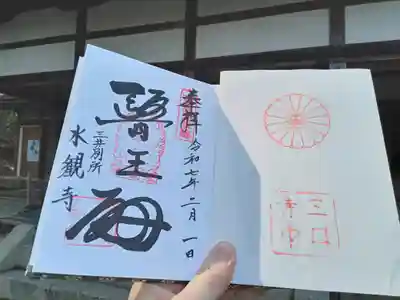 奉拝
令和七年二月一日
醫王殿
三井別所
水観寺